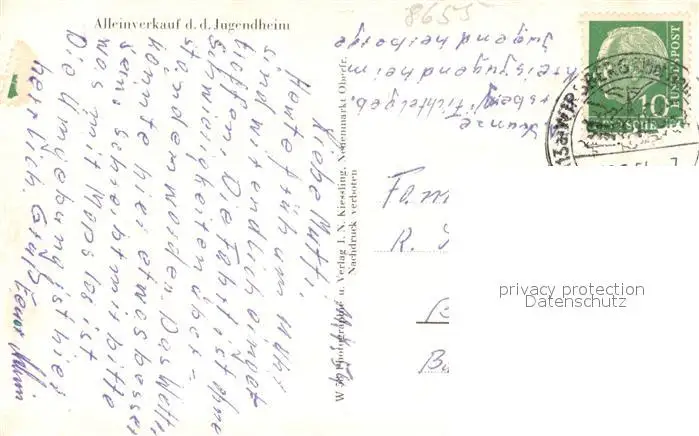 Alleinverkauf d. d. Jugendheim
8655
Liebe Mutti,
Heute früh um 11 Uhr
sind wir endlich einget
troffen. Die Fahrt ist ohne
Schwierigkeiten über-
standen worden. Das Wetter
könnte hier etwas besser
sein. Schreibt mir bitte
was mit Mops los ist
Die Umgebung ist hier
herrlich. Gruß Euer
W 59 Photographie u. Verlag J. N. Kiessling, Neuenmarkt Oberfr.
Nachdruck verboten
Fichtelgeb.
Kreisjugendheim
Jugendherberge
10
DEUTSCHE BUNDESPOST
Fam
R.
privacy protection
Datenschutz